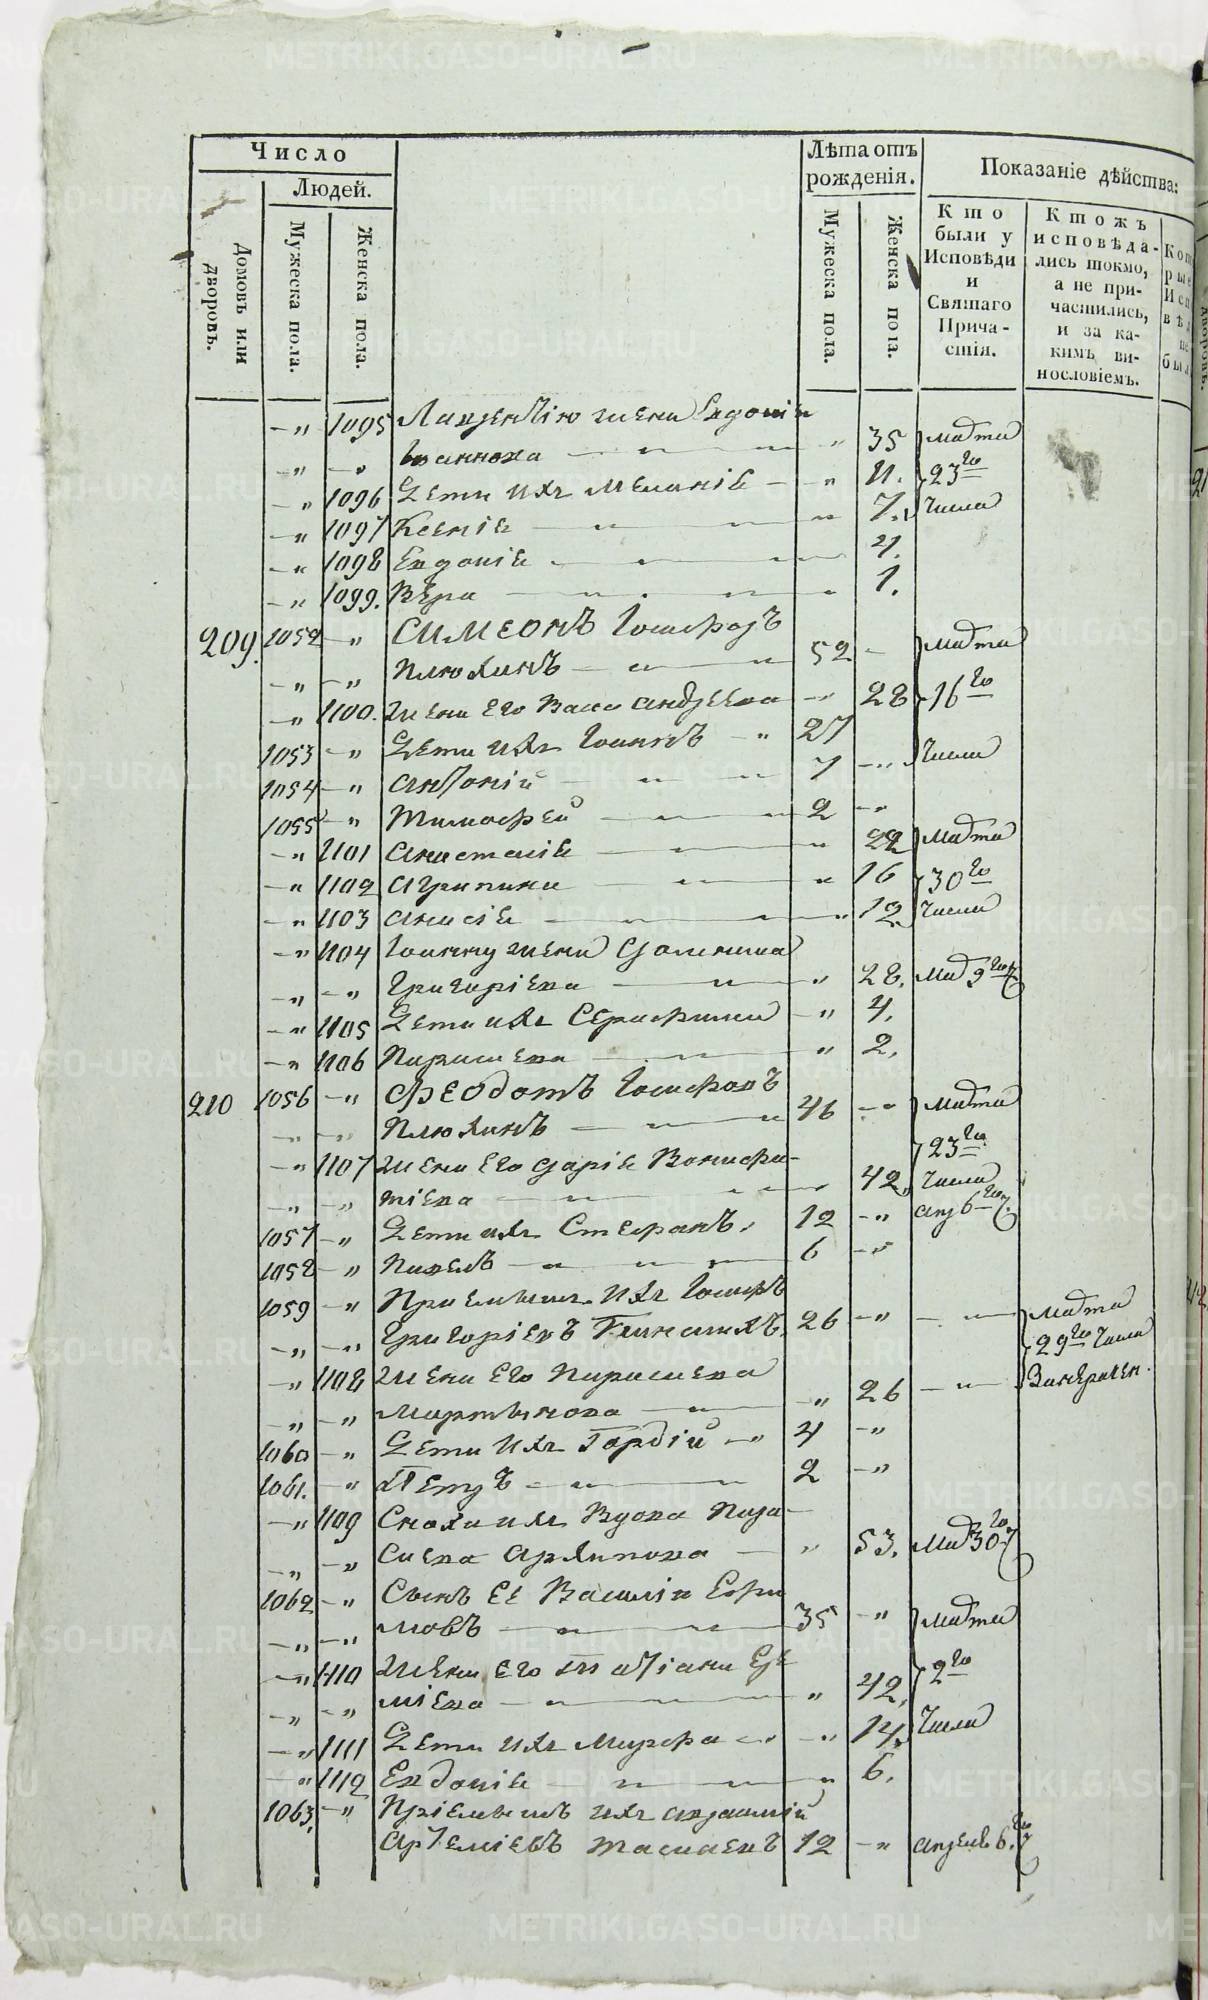 Число
Людей.
Домовъ или дворовъ.
Мужеска пола.
Женска пола.
Лѣта отъ рожденія.
Мужеска пола.
Женска пола.
Показаніе дѣйства:
Кто были у Исповѣди и Святаго Причастія.
Ктожъ исповѣдались токмо, а не причастились, и за какимъ винословіемъ.
-„ 1095 Лаврентію жена Евдокія
-„ -„ Іоаннова — „ 35 марта
-„ 1096 Дети ихъ Меланія — „ 11. 23го
-„ 1097 Ксенія — „ 7. числа
-„ 1098 Евдокія — 4.
-„ 1099. Вѣра — „ 1.
209. 1052 -„ Симеонъ Іосифовъ
-„ -„ Плюхинъ — 52 - марта
-„ 1100. Жена его Васса Андреева -„ 28 16го
1053 -„ Дети ихъ Іоаннъ -„ 27 числа
1054 -„ Антоній — 7 -„
1055 -„ Тимофей — 2 -„
-„ 1101 Анастасія — „ 22 марта
-„ 1102 Агрипина — „ 16 30го
-„ 1103 Анисія — „ 12. числа
-„ 1104 Іоанну жена Соломида
-„ -„ Григоріева — „ 28. мар 9го
-„ 1105 Дети ихъ Серафима -„ 4.
-„ 1106 Параскева — „ 2.
210 1056 -„ Феодотъ Іосифовъ
-„ -„ Плюхинъ — 46 -„ марта
-„ 1107 Жена его Дарія Вонифа- 23го
-„ -„ тіева — 42. числа
1057 -„ Дети ихъ Стефанъ 12 -„ апр 6го
1058 -„ Павелъ — 6 -„
1059 -„ Приемышъ ихъ Іосифъ
-„ -„ Григоріевъ 26 -„ -„- марта 29го числа
-„ 1108 Жена его Параскева
-„ -„ Мартынова — „ 26 -„-
1060 -„ Дети ихъ Гордій -„ 4 -„
1061. -„ Петръ — 2 -„
-„ 1109 Сноха ихъ вдова Пара-
-„ -„ скева Архипова — „ 53. мар 30го
1062 -„ Сынъ ее Василій Ефи
-„ -„ мовъ — 35 -„ марта
-„ 1110 Жена его Татіана Ере 2го
-„ -„ міева — „ 42. числа
-„ 1111 Дети ихъ Марфа -„ -„ 14.
-„ 1112 Евдокія — „ 6.
1063. -„ Пріемышъ ихъ
Артеміевъ 12 -„ апреля 6го
METRIKI.GASO-URAL.RU